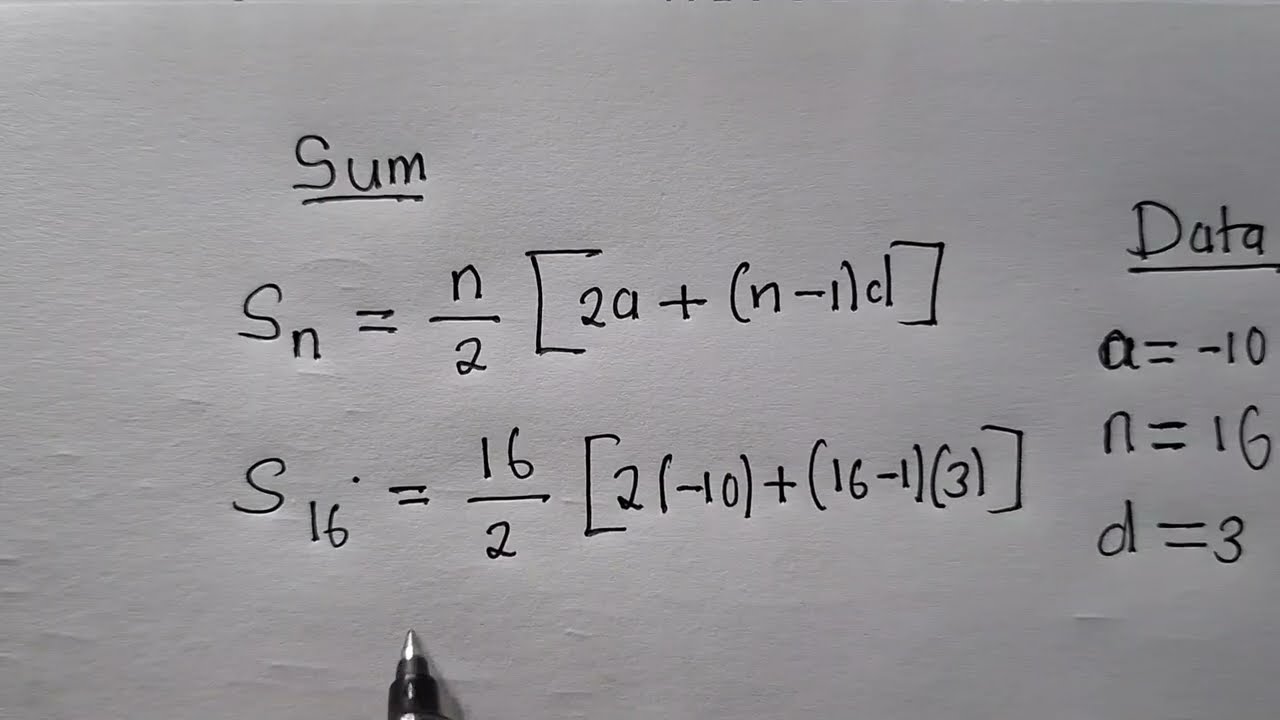 Sum
Sn = n/2 [2a + (n-1)d]
S16 = 16/2 [2(-10) + (16-1)(3)]
Data
a = -10
n = 16
d = 3